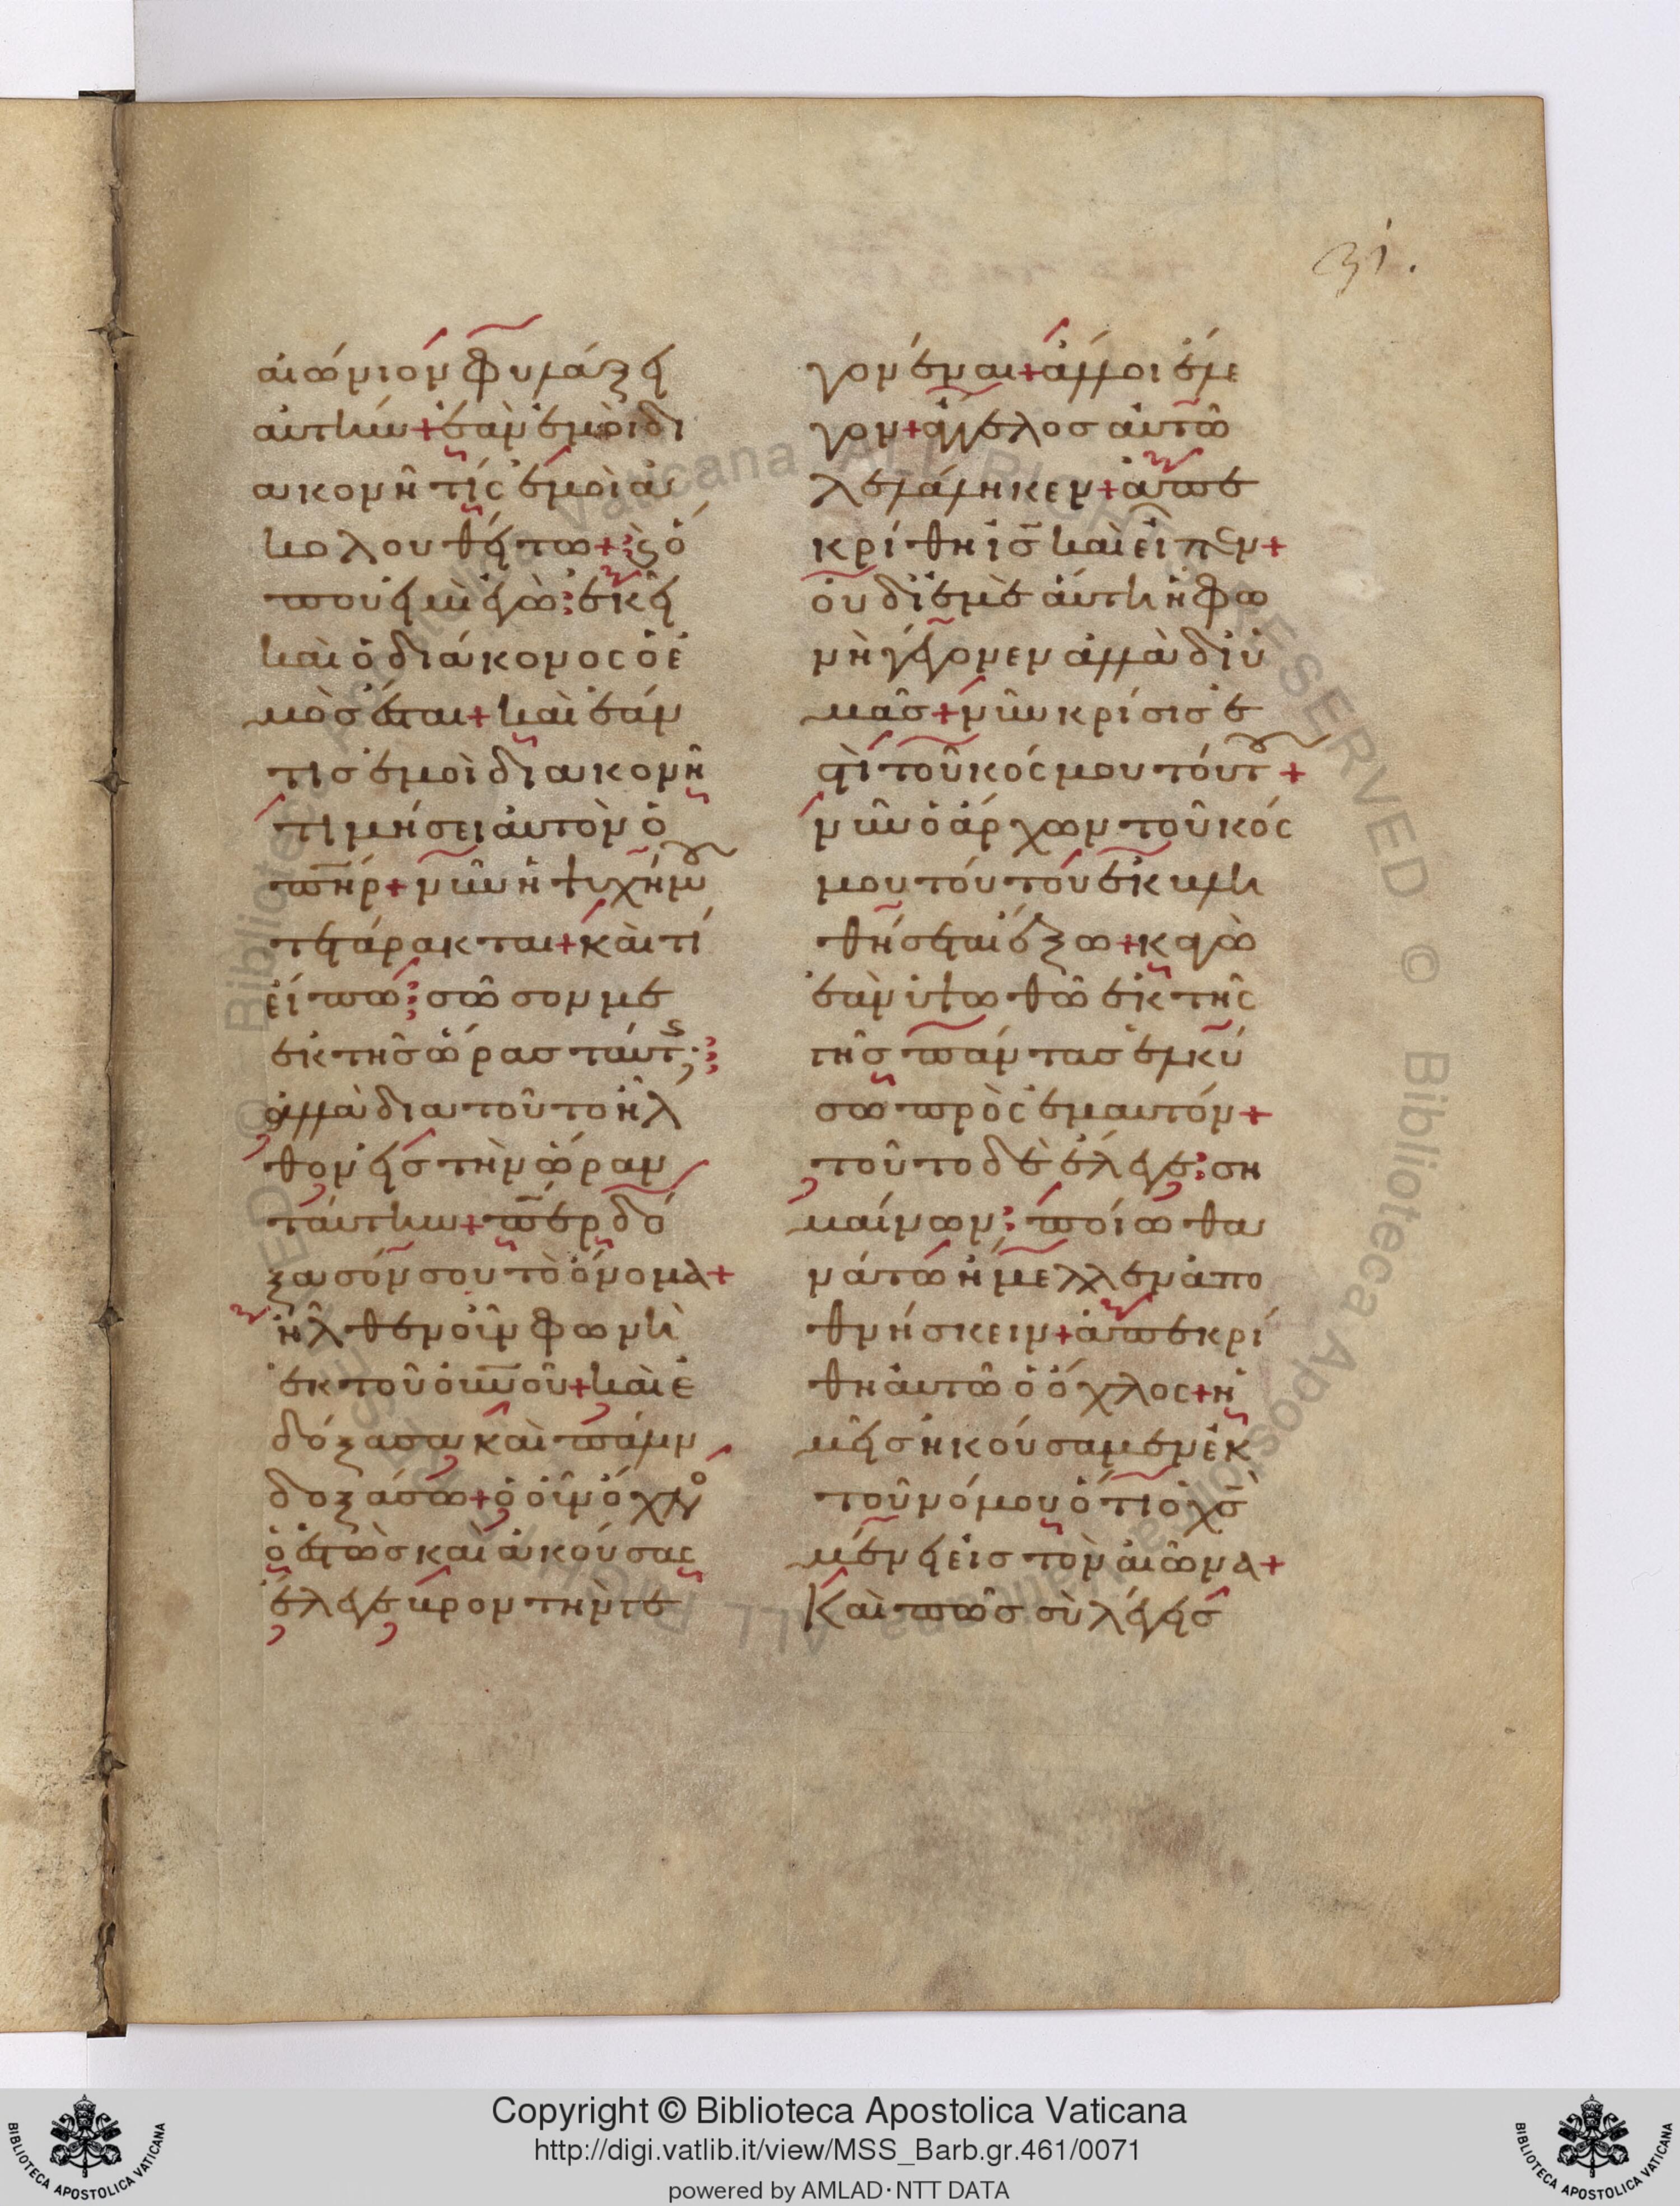 31.
αἰώνιον φυλάξει
αὐτήν + ἐὰν ἐμοὶ δι
ακονῆ τίς ἐμοὶ ἀ
κολουθείτω + ϗ ὅ
που εἰμὶ ἐγὼ : ἐκεῖ
καὶ ὁ διάκονος ὁ ἐ
μὸσ ἔσται + καὶ ἐάν
τισ ἐμοὶ διακονῆ
τιμήσει αὐτὸν ὁ
πῆρ + νῦν ἡ ψυχή μου
τετάρακται + καὶ τί
εἴπω : σῶσον με
ἐκ τῆσ ὥρασ ταύτης ;
ἀλλὰ δια τοῦτο ἦλ
θον εἰσ τὴν ὥραν
ταύτην + περ δό
ξασόν σου τὸ ὄνομα +
ἦλθεν οὖν φωνὴ
ἐκ τοῦ οὐνοῦ + καὶ ἐ
δόξασα καὶ πάλιν
δοξάσω + ὁ οὖν ὄχλο
ὁ ἑστὼσ καὶ ἀκούσας
ἔλεγε βροντὴν γε
γονέναι + ἄλλοι ἔλε
γον + ἄγγελοσ αὐτῶ
λελάληκεν + ἀπε
κρίθη ἰσ καὶ εἶπεν +
οὐ δἰ ἐμὲ αὕτη ἡ φω
νὴ γέγονεν ἀλλὰ δἰ ὑ
μᾶσ + νῦν κρίσισ ἐ
στὶ τοῦ κόσμου τούτου +
νῦν ὁ ἄρχων τοῦ κόσ
μου τούτου ἐκβλη
θήσεται ἔξω + κἀγὼ
ἐὰν ὑψωθῶ ἐκ τῆς
γῆσ πάντασ ἑλκύ
σω πρὸς ἐμαυτόν +
τοῦτο δὲ ἔλεγε : ση
μαίνων : ποίω θα
νάτω ἤμελλεν ἀπο
θνήσκειν + ἀπεκρί
θη αὐτῶ ὁ ὄχλος + ἡ
μεῖσ ἠκούσαμεν ἐκ
τοῦ νόμου ὅτι ὁ χσ
μένει εἰσ τὸν αἰῶνα +
Καὶ πῶσ σὺ λέγεισ
Copyright © Biblioteca Apostolica Vaticana
http://digi.vatlib.it/view/MSS_Barb.gr.461/0071
powered by AMLAD·NTT DATA
BIBLIOTECA APOSTOLICA VATICANA
BIBLIOTECA APOSTOLICA VATICANA